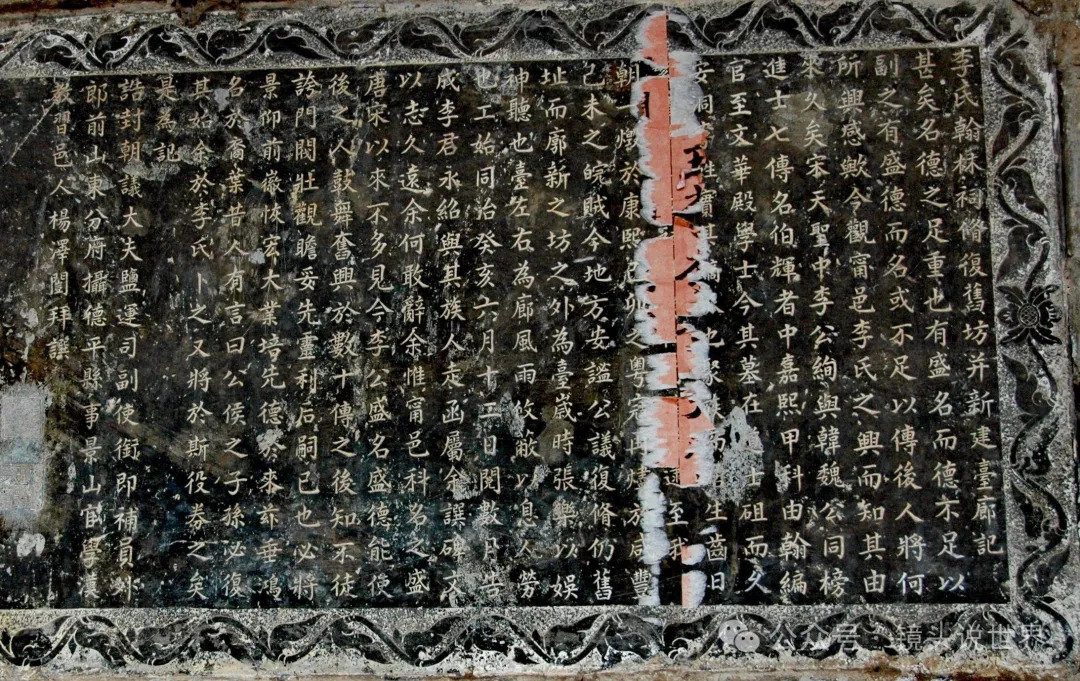 李氏翰林祠脩復舊坊并新建臺廊記
甚矣名德之足重也有盛名而德不足以
副之有盛德而名或不足以傳後人將何
所興感歟今觀甯邑李氏之興而知其由
來久矣宋天聖中李公絢與韓魏公同榜
進士七傳名伯輝者中嘉熙甲科由翰編
官至文華殿學士今其墓在 士砠而久
安 生齒日
朝一燬於康熙己卯之粵寇再燼於咸豐
己未之皖賊今地方安謐公議復脩仍舊
址而廓新之坊之外為臺歲時張樂以娛
神聽也臺左右為廊風雨攸蔽以息人勞
也工始同治癸亥六月十二日閱數月告
成李君永紹與其族人走函屬余譔碑文
以志久遠余何敢辭余惟甯邑科名之盛
唐宋以來不多見今李公盛名盛德能使
後之人鼓舞奮興於數十傳之後知不徒
誇門閥壯觀瞻妥先畫利后嗣已也必將
景仰前徽恢宏大業培先德於來茲垂鴻
名於裔葉昔人有言曰公侯之子孫必復
其始余於李氏卜之又將於斯役券之矣
是為記
誥封朝議大夫鹽運司副使銜即補員外
郎前山東分府攝德平縣事景山官學漢
教習邑人楊澤闓拜譔
公众号·镜头说世界